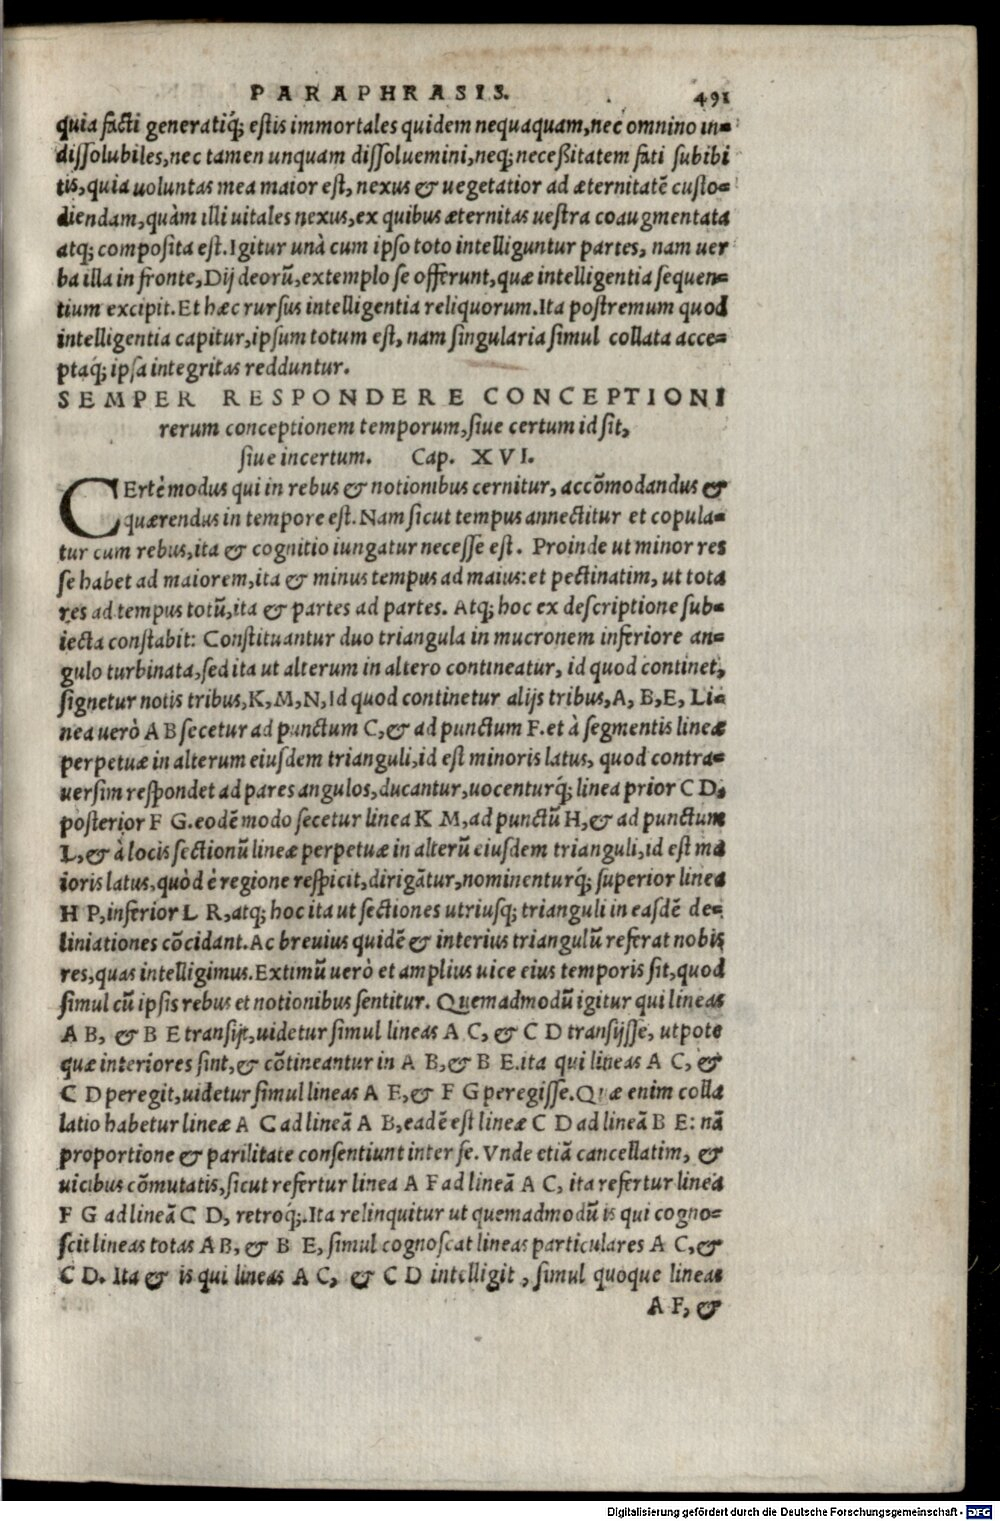 PARAPHRASIS. 491
quia facti generatiq́; estis immortales quidem nequaquam, nec omnino in=
dissolubiles, nec tamen unquam dissoluemini, neq; neceßitatem fati subibi
tis, quia uoluntas mea maior est, nexus & uegetatior ad æternitatẽ custo=
diendam, quàm illi uitales nexus, ex quibus æternitas uestra coaugmentata
atq; composita est. Igitur unà cum ipso toto intelliguntur partes, nam uer
ba illa in fronte, Dij deorũ, extemplo se offerunt, quæ intelligentia sequen=
tium excipit. Et hæc rursus intelligentia reliquorum. Ita postremum quod
intelligentia capitur, ipsum totum est, nam singularia simul collata acce=
ptaq́; ipsa integritas redduntur.
SEMPER RESPONDERE CONCEPTIONI
rerum conceptionem temporum, siue certum id sit,
siue incertum. Cap. XVI.
CErtè modus qui in rebus & notionibus cernitur, accõmodandus &
quærendus in tempore est. Nam sicut tempus annectitur et copula=
tur cum rebus, ita & cognitio iungatur necesse est. Proinde ut minor res
se habet ad maiorem, ita & minus tempus ad maius: et pectinatim, ut tota
res ad tempus totũ, ita & partes ad partes. Atq; hoc ex descriptione sub=
iecta constabit: Constituantur duo triangula in mucronem inferiore an=
gulo turbinata, sed ita ut alterum in altero contineatur, id quod continet,
signetur notis tribus, K, M, N, Id quod continetur alijs tribus, A, B, E, Li=
nea uerò A B secetur ad punctum C, & ad punctum F. et à segmentis lineæ
perpetuæ in alterum eiusdem trianguli, id est minoris latus, quod contra=
uersim respondet ad pares angulos, ducantur, uocenturq́; linea prior C D,
posterior F G. eodẽ modo secetur linea K M, ad punctũ H, & ad punctum
L, & à locis sectionũ lineæ perpetuæ in alterũ eiusdem trianguli, id est ma
ioris latus, quòd è regione respicit, dirigãtur, nominenturq́; superior linea
H P, inferior L R, atq; hoc ita ut sectiones utriusq; trianguli in easdẽ de=
liniationes cõcidant. Ac breuius quidẽ & interius triangulũ referat nobis
res, quas intelligimus. Extimũ uerò et amplius uice eius temporis sit, quod
simul cũ ipsis rebus et notionibus sentitur. Quemadmodũ igitur qui lineas
A B, & B E transijt, uidetur simul lineas A C, & C D transijsse, utpote
quæ interiores sint, & cõtineantur in A B, & B E. ita qui lineas A C, &
C D peregit, uidetur simul lineas A F, & F G peregisse. Quæ enim colla
latio habetur lineæ A C ad lineã A B, eadẽ est lineæ C D ad lineã B E: nã
proportione & parilitate consentiunt inter se. Vnde etiã cancellatim, &
uicibus cõmutatis, sicut refertur linea A F ad lineã A C, ita refertur linea
F G ad lineã C D, retroq́;. Ita relinquitur ut quemadmodũ is qui cogno=
scit lineas totas AB, & B E, simul cognoscat lineas particulares A C, &
C D. Ita & is qui lineas A C, & C D intelligit, simul quoque lineas
A F, &
Digitalisierung gefördert durch die Deutsche Forschungsgemeinschaft - DFG